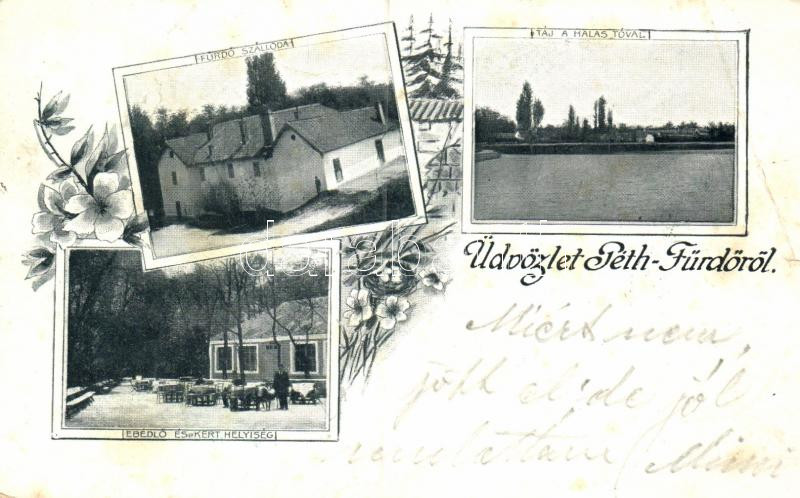 FÜRDŐ SZÁLLODA
TÁJ A HALAS TÓVAL
Üdvözlet Péth-Fürdőről.
EBÉDLŐ ÉS KERT HELYISÉG
Miért nem
jött el ide jól
mulattam Mimi
darabanth